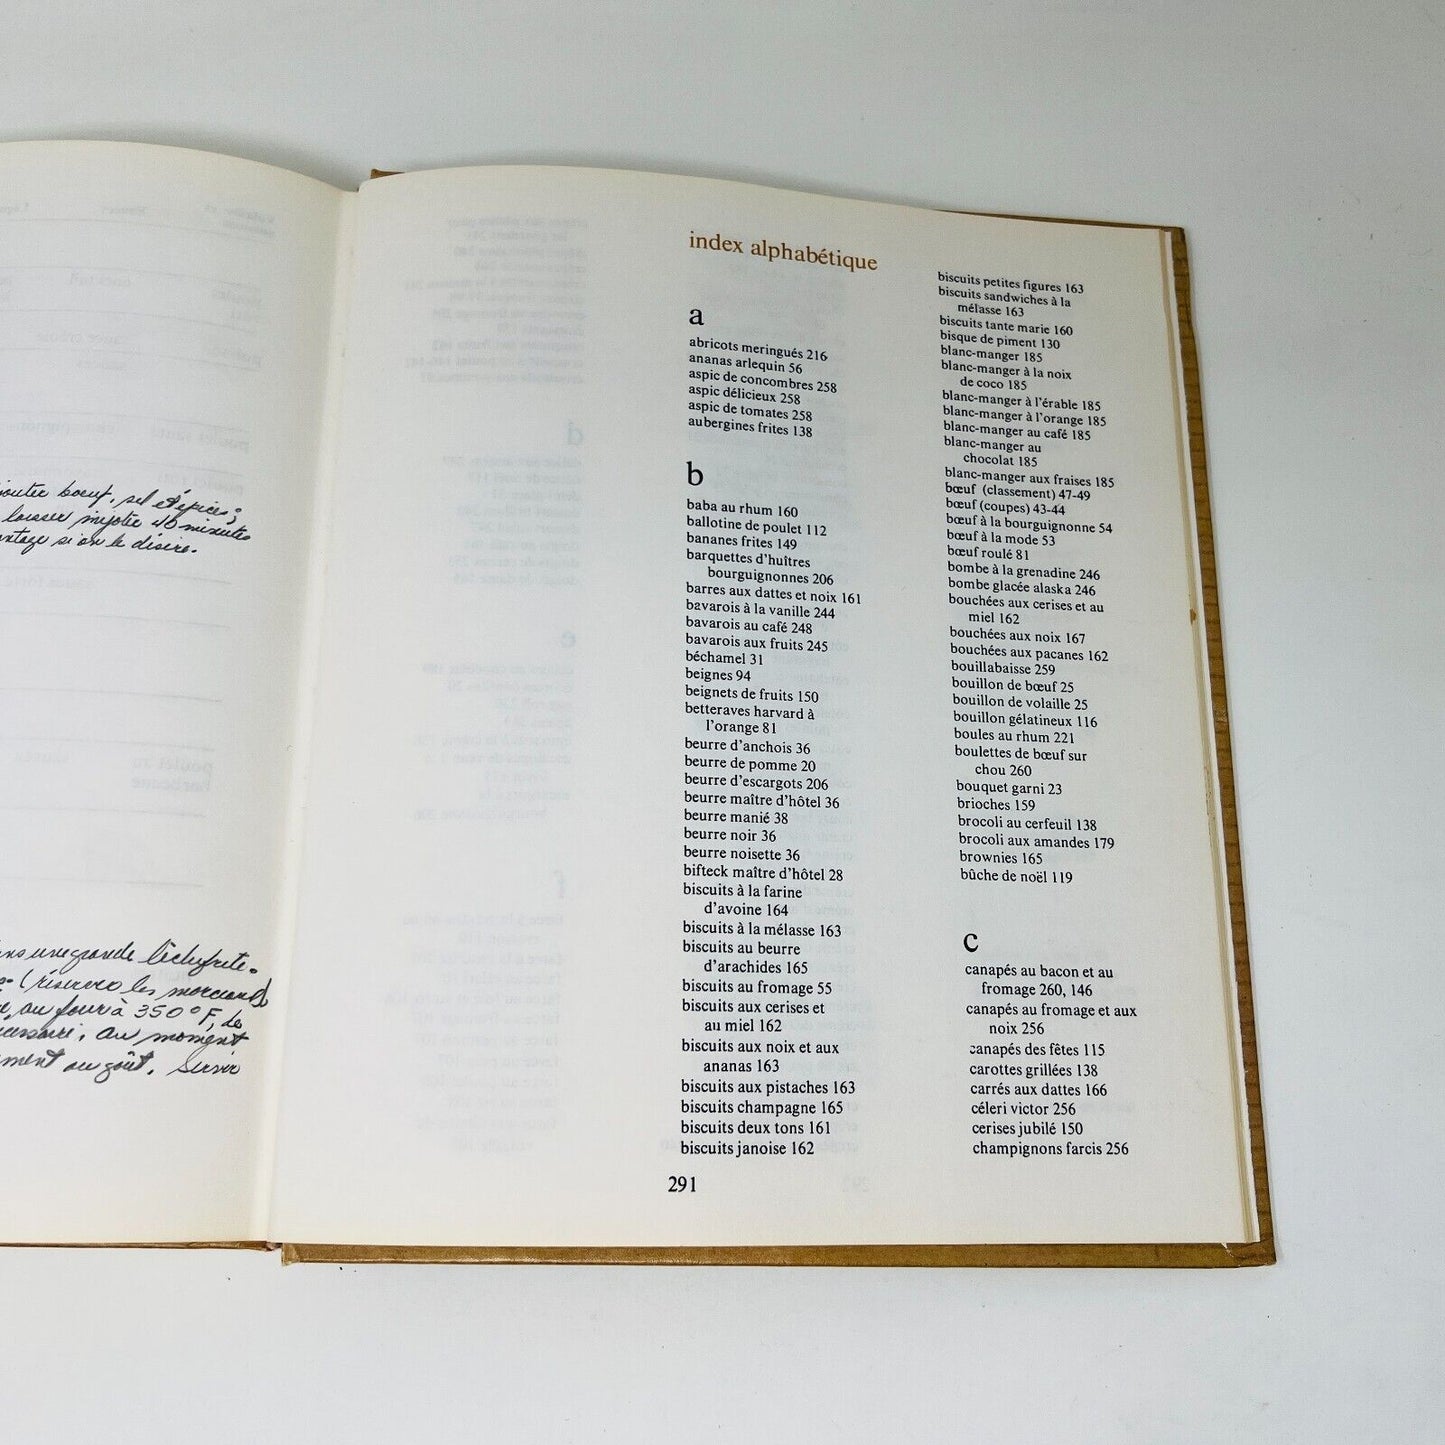 boeuf, sel et épices;
laisser mijoter 40 minutes
si on le désire.
une grande lèchefrite.
(réserver les morceaux
au four à 350° F, de
au moment
au goût. Servir
index alphabétique
a
abricots meringués 216
ananas arlequin 56
aspic de concombres 258
aspic délicieux 258
aspic de tomates 258
aubergines frites 138
b
baba au rhum 160
ballotine de poulet 112
bananes frites 149
barquettes d'huîtres
bourguignonnes 206
barres aux dattes et noix 161
bavarois à la vanille 244
bavarois au café 248
bavarois aux fruits 245
béchamel 31
beignes 94
beignets de fruits 150
betteraves harvard à
l'orange 81
beurre d'anchois 36
beurre de pomme 20
beurre d'escargots 206
beurre maître d'hôtel 36
beurre manié 38
beurre noir 36
beurre noisette 36
bifteck maître d'hôtel 28
biscuits à la farine
d'avoine 164
biscuits à la mélasse 163
biscuits au beurre
d'arachides 165
biscuits au fromage 55
biscuits aux cerises et
au miel 162
biscuits aux noix et aux
ananas 163
biscuits aux pistaches 163
biscuits champagne 165
biscuits deux tons 161
biscuits janoise 162
biscuits petites figures 163
biscuits sandwiches à la
mélasse 163
biscuits tante marie 160
bisque de piment 130
blanc-manger 185
blanc-manger à la noix
de coco 185
blanc-manger à l'érable 185
blanc-manger à l'orange 185
blanc-manger au café 185
blanc-manger au
chocolat 185
blanc-manger aux fraises 185
bœuf (classement) 47-49
bœuf (coupes) 43-44
bœuf à la bourguignonne 54
bœuf à la mode 53
bœuf roulé 81
bombe à la grenadine 246
bombe glacée alaska 246
bouchées aux cerises et au
miel 162
bouchées aux noix 167
bouchées aux pacanes 162
bouillabaisse 259
bouillon de bœuf 25
bouillon de volaille 25
bouillon gélatineux 116
boules au rhum 221
boulettes de bœuf sur
chou 260
bouquet garni 23
brioches 159
brocoli au cerfeuil 138
brocoli aux amandes 179
brownies 165
bûche de noël 119
c
canapés au bacon et au
fromage 260, 146
canapés au fromage et aux
noix 256
canapés des fêtes 115
carottes grillées 138
carrés aux dattes 166
céleri victor 256
cerises jubilé 150
champignons farcis 256
291